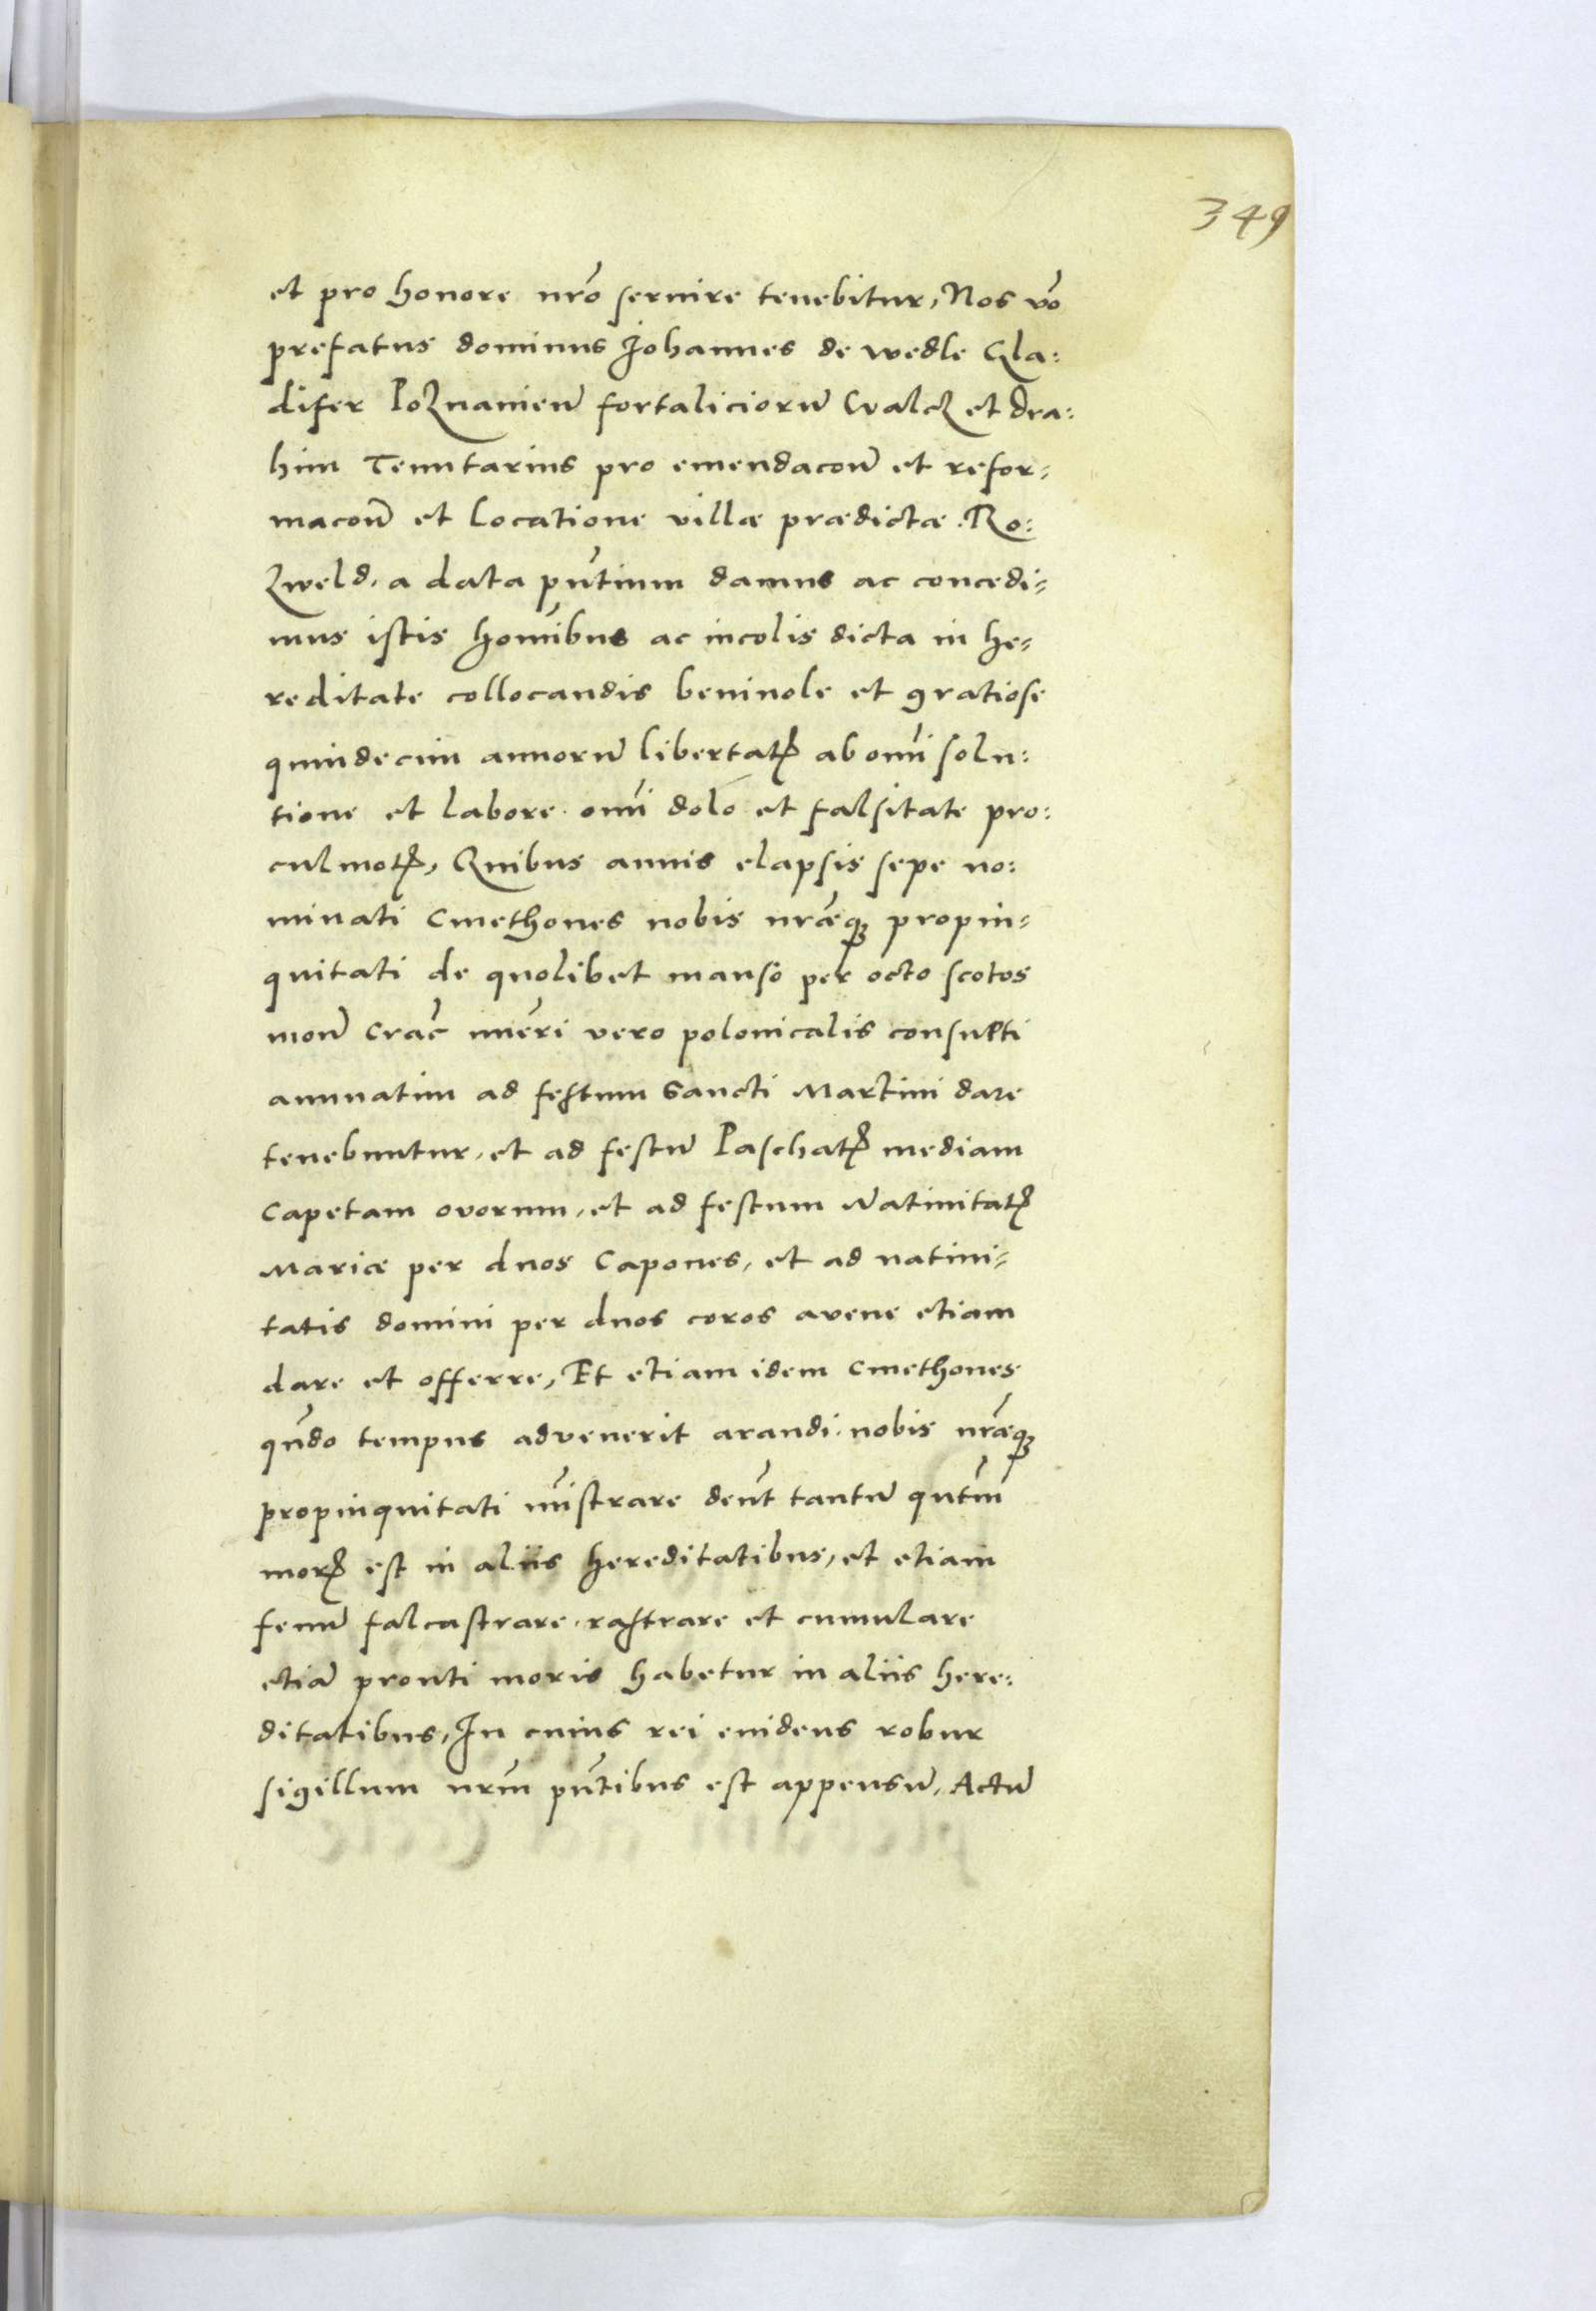 349
et pro honore nr̄o seruire tenebitur, Nos v̄o
prefatus dominus Johannes de wedle Gla:
difer Poznanien̄ fortaliciorū Walcz et dra:
him Tenutarius pro emendacoñ et refor-
macoñ et locatione villæ prædictæ Ro:
zweld, a data pn̄tium damus ac concedi-
mus istis hom̄ibus ac incolis dicta in he-
reditate collocandis beniuole et gratiose
quindecim annorū libertatꝭ ab om̄i solu:
tione et labore om̄i dolo et falsitate pro:
culmotꝭ, Quibus annis elapsis sepe no:
minati Cmethones nobis nr̄æqꝫ propin-
quitati de quolibet manso per octo scotos
mon̄ Crac̄ nūeri vero polonicalis consueti
annuatim ad festum Sancti Martini dare
tenebuntur, et ad festū Paschatꝭ mediam
Capetam ovorum, et ad festum Natiuitatꝭ
Mariæ per duos Capones, et ad natiui-
tatis domini per duos coros avene etiam
dare et offerre, Et etiam idem Cmethones
qn̄do tempus advenerit arandi nobis nr̄æqꝫ
propinquitati mīstrare den̄t tantū qn̄tm̄
morꝭ est in aliis hereditatibus, et etiam
fenū falcastrare, rastrare et cumulare
etiā prouti moris habetur in aliis here:
ditatibus, In cuius rei euidens robur
sigillum nrm̄ pn̄tibus est appensū, Actū